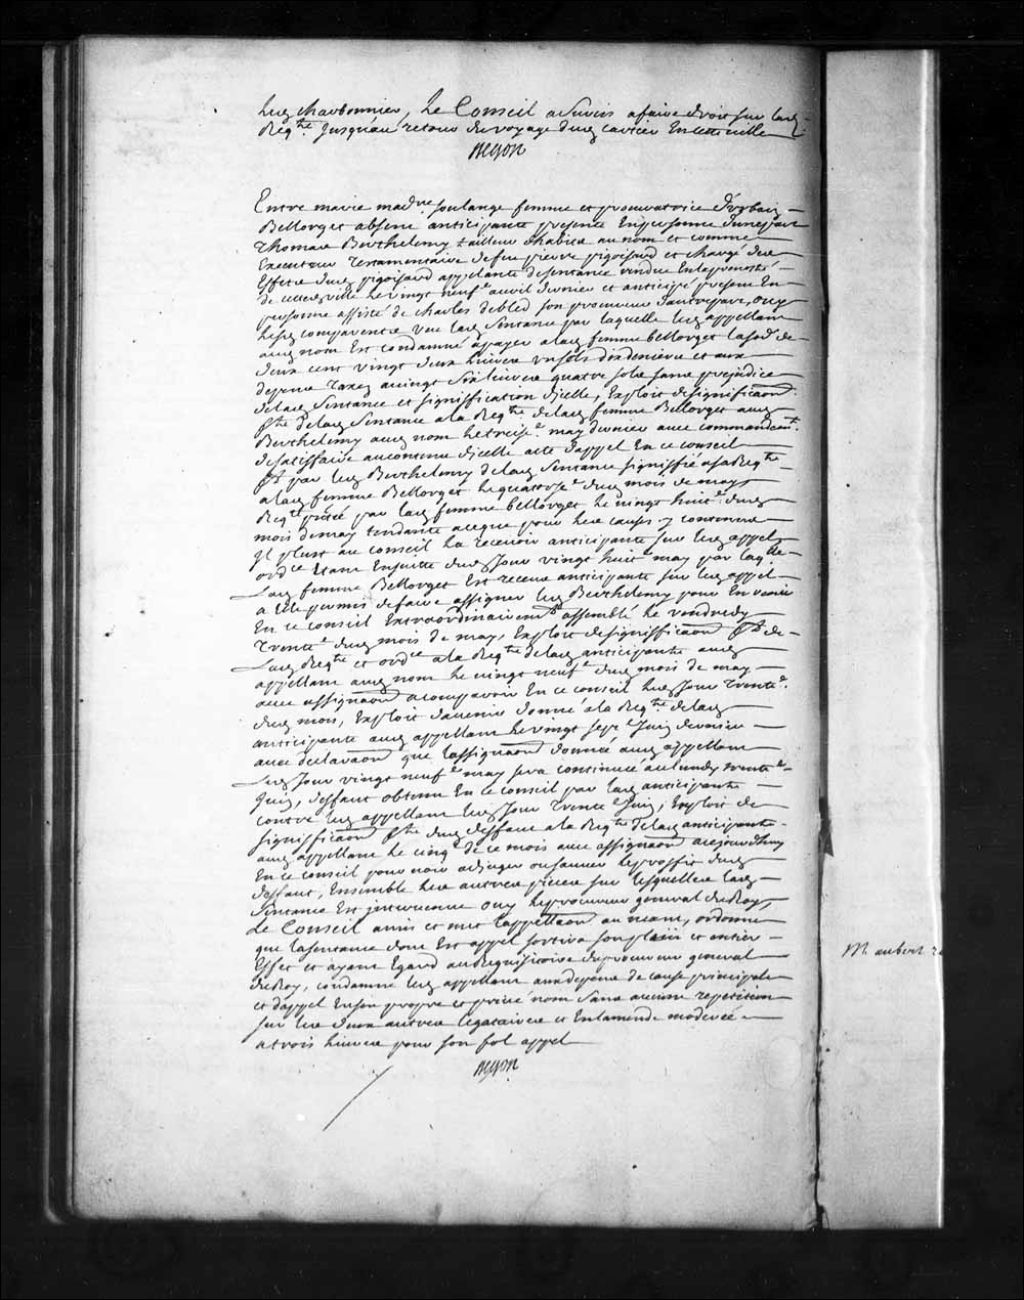 led. Charbonnier, Le Conseil a surcis a faire droit sur lad.
Reqte. Jusqu'au retour du voyage dud. cartier En cette ville
Begon
Entre marie madne. soulange femme et procuratrice d'urbain
Bellorget absent anticipante presente En personne d'une part
Thomas Berthelemy tailleur d'habits au nom et comme
Executeur Testamentaire de feu pierre pigoisard et chargé des
Effets dud. pigoisard appelant de sentence rendue En la prevosté
de cette ville le vingt neufe. avril dernier et anticipé present En
personne assisté de charles debled son procureur d'autre part, ouy
lesd. comparants Veu lad. sentance par laquelle led. appellant
aud. nom Est condamné a payer a lad. femme bellorget la so.e de
deux cent vingt deux livres un sols dix deniers et aux
depens Taxez a vingt six livres quatre sols sans prejudice
de lad. sentance et signification d'icelle, Exploit de significaon.
fte. de lad. sentance a la Reqte. de lad. femme Bellorget aud.
Berthelemy aud. nom le treise. may dernier avec commandemt.
de satisfaire au contenu d'icelle acte d'appel En ce conseil
ft par led. Berthelemy de lad. sentance signiffié a sa Reqte.
a lad. femme Bellorget le quatorze. dud. mois de may
Reqte. pntée par lad. femme bellorget le vingt huit.e dud.
mois de may tendante a ce que pour les causes y contenues
Il plust au conseil la recevoir anticipante sur led. appel
ordce Etant Ensuitte dud. Jour vingt huite may par laqlle.
Lad. femme Bellorget Est receue anticipante sur led. appel
a Elle permis de faire assigner led. Berthelemy pour En venir
En ce conseil Extraordinairemt. assemblé le vendredy
Trente.e dud. mois de may, Exploit de signifficaon ft de
Lad. Reqte et ordce a la Reqte de lad. anticipante aud.
appellant aud. nom le vingt neufe. dud. mois de may
avec assignaon a comparoir En ce conseil led. Jour Trente.e
dud. mois, Exploit d'avenir donné a la Reqte. de lad.
anticipante aud. appellant le vingt sept.e Juin dernier
avec declaraon que lassignaon donnée aud. appellant
Led. Jour vingt neufe. may sera continuée au lundy trente.e
Juin, deffaut obtenu En ce conseil par lad. anticipante
contre led. appellant led. Jour Trente.e Juin, Exploit de
signifficaon fte. dud. deffaut a la Reqte de lad. anticipante
aud. appellant le cinqe. de ce mois avec assignaon a cejourdhuy
En ce conseil pour voir adjuger ou sauver le proffit dud.
deffaut, Ensemble les autres pieces sur lesquelles lad.
sentance Est intervenue ouy le procureur general du Roy,
Le Conseil a mis et met l'appellaon au neant, ordonne
que la sentance dont Est appel sortira son plain et entier
Effet et ayant Egard au Requisitoire du procureur general
du Roy, condamne led. appellant aux depens de cause principale
et d'appel En son propre et privé nom sans aucune repetition
sur les deux autres legataires et En lamende moderée
a trois livres pour son fol appel
Begon
Mr. aubert